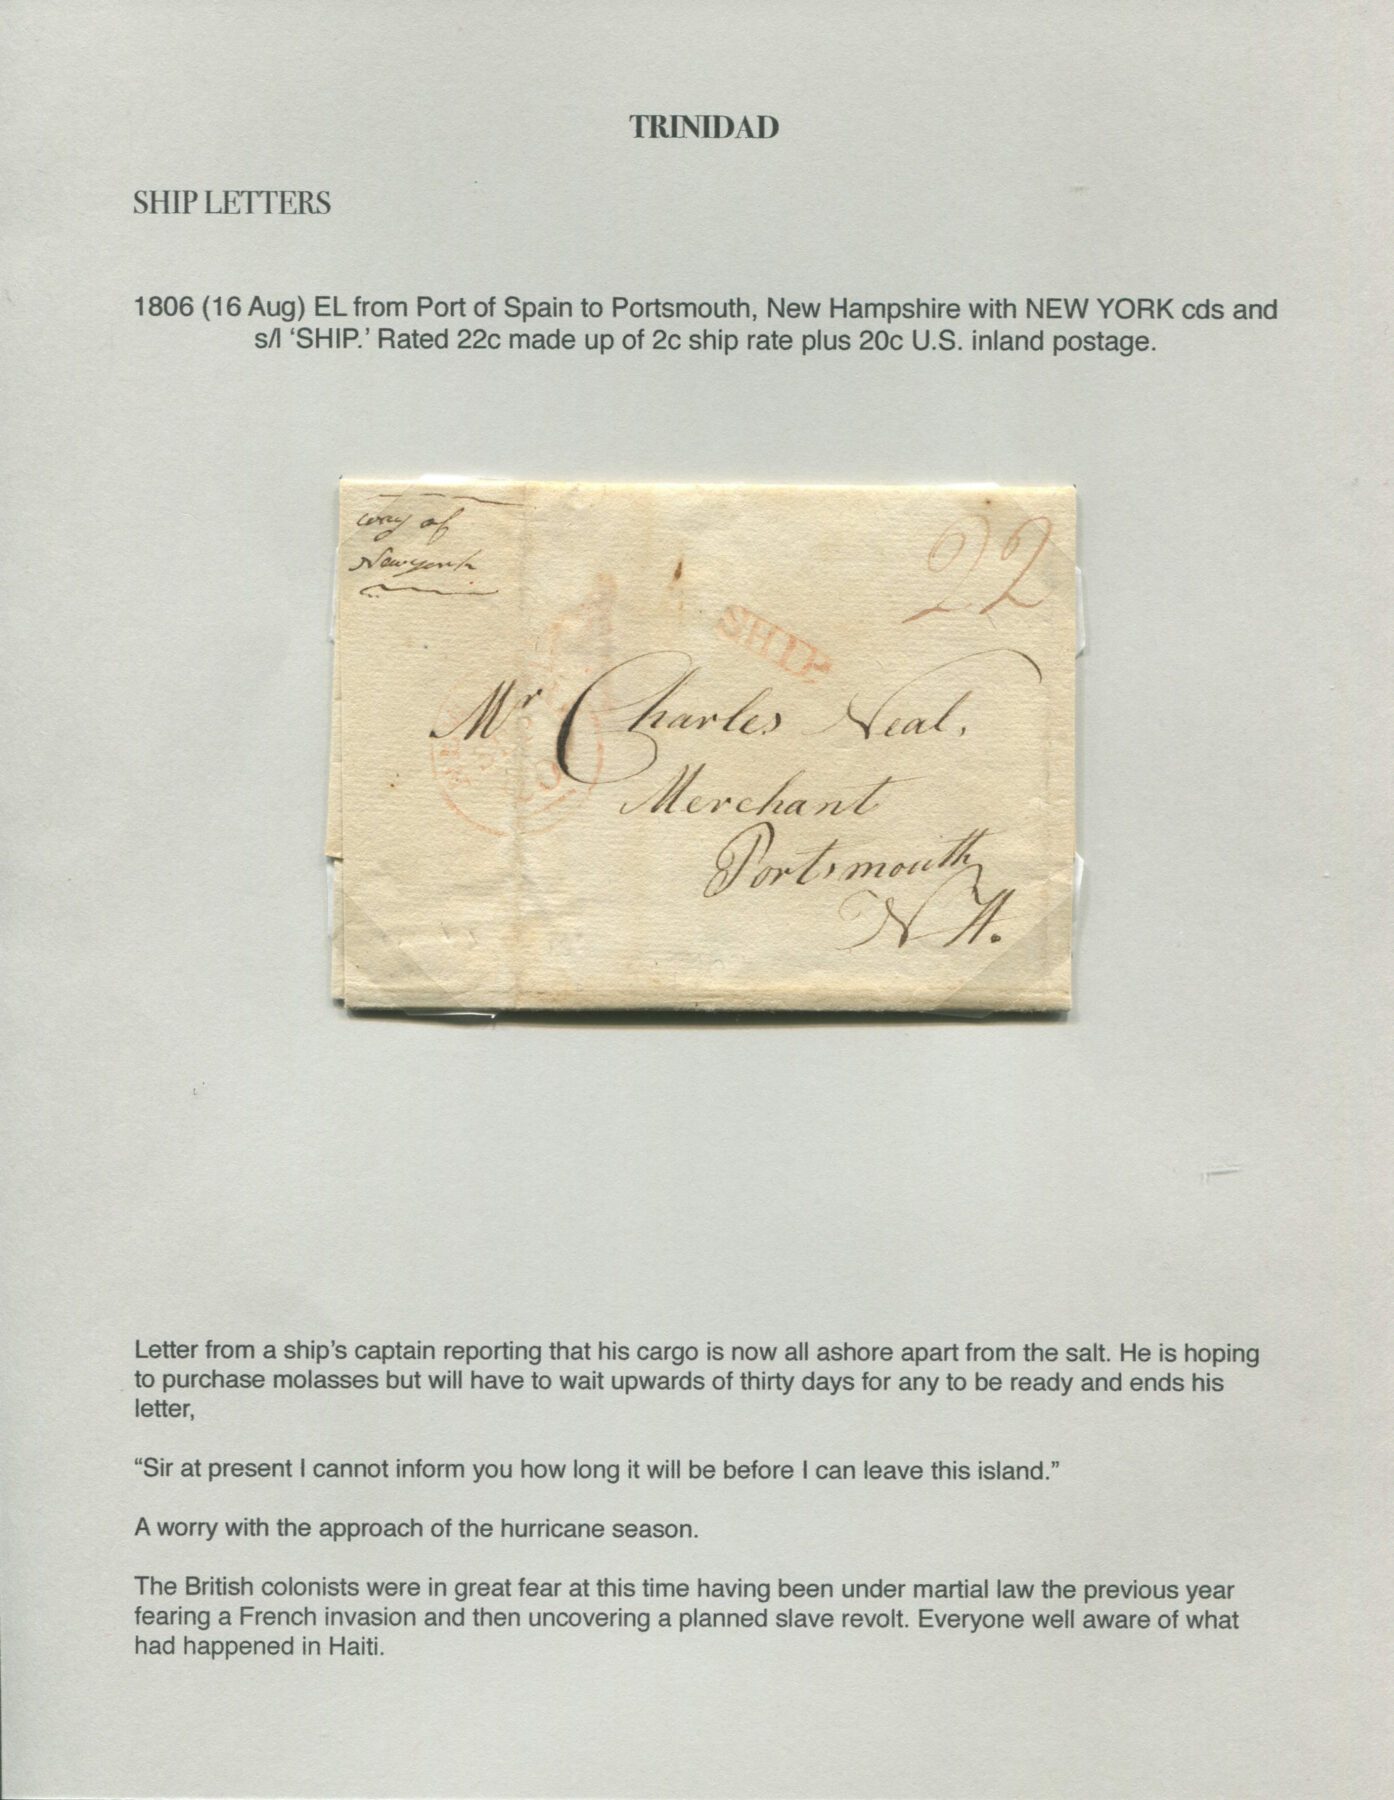 TRINIDAD
SHIP LETTERS
1806 (16 Aug) EL from Port of Spain to Portsmouth, New Hampshire with NEW YORK cds and
s/l ‘SHIP.’ Rated 22c made up of 2c ship rate plus 20c U.S. inland postage.
way of
Newyork
22
SHIP
Mr Charles Neal,
Merchant
Portsmouth
N H.
Letter from a ship’s captain reporting that his cargo is now all ashore apart from the salt. He is hoping
to purchase molasses but will have to wait upwards of thirty days for any to be ready and ends his
letter,
“Sir at present I cannot inform you how long it will be before I can leave this island.”
A worry with the approach of the hurricane season.
The British colonists were in great fear at this time having been under martial law the previous year
fearing a French invasion and then uncovering a planned slave revolt. Everyone well aware of what
had happened in Haiti.